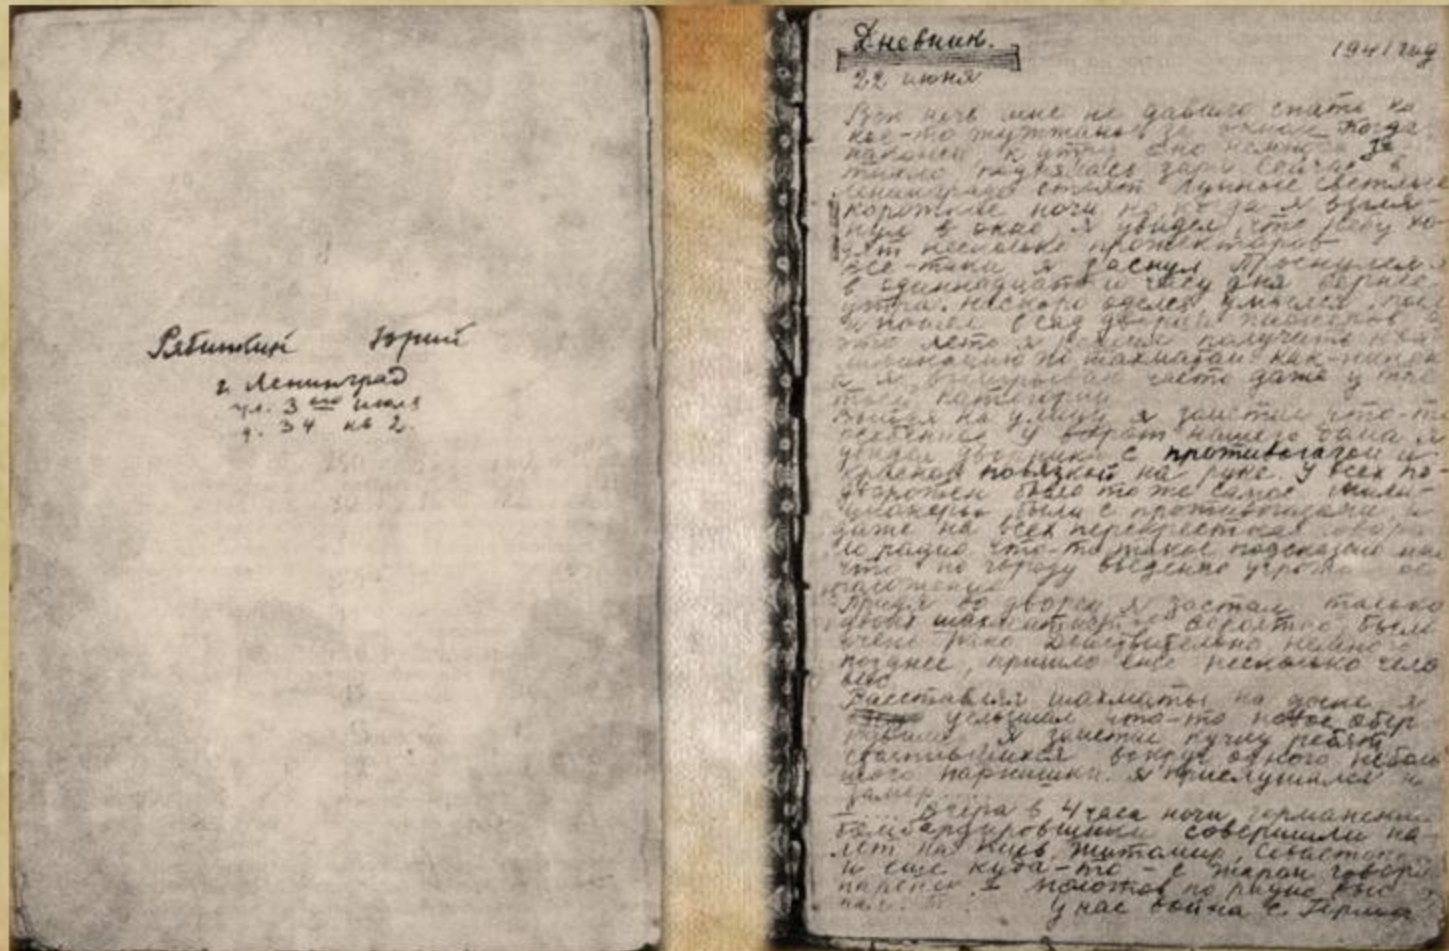 Рябинкин Юрий
г. Ленинград
ул. 3его июля
д. 34 кв 2.
Дневник.
1941 год
22 июня
Всю ночь мне не давало спать ка
кое-то жужжанье за окном Когда
наконец к утру оно немного за
тихло, поднялась заря Сейчас в
Ленинграде стоят лунные светлые
короткие ночи но когда я взгля-
нул в окно, я увидел, что небу хо
дят несколько прожекторов
Все-таки я заснул Проснулся я
в одиннадцатом часу дня вернее
утра. Наскоро оделся умылся, поел
и пошел в сад дворца пионеров В
это лето я решил получить ква
лификацию по шахматам как-никак
а я выигрываю часто даже у тре
тьей категории
Выйдя на улицу я заметил что-то
особенное У ворот нашего дома я
увидел дворника с противогазом и
красной повязкой на руке. У всех по-
дворотен было то же самое Мили-
ционеры были с противогазами, и
даже на всех перекрестках говори
ло радио Что-то такое подсказало мне
что по городу введено угрожа ое
положение
Придя во дворец я застал только
двоих шахматистов вероятно было
очень рано Действительно немного
позднее, пришло еще несколько чело
век
Расставляя шахматы на доске я
услышал что-то новое обер
нувшись я заметил кучку ребят,
столпившихся вокруг одного неболь
шого парнишки. Я прислушался и
замер....
- ... Вчера в 4 часа ночи германские
бомбардировщики совершили на-
лет на Киев, Житомир, Севастополь
и еще куда-то - с жаром говорил
паренек - Молотов по радио выс
У нас война с Герма